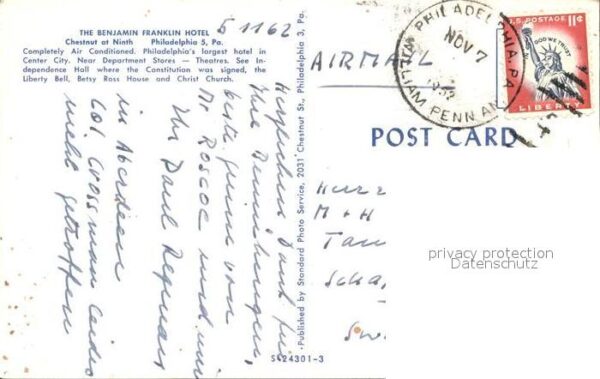 THE BENJAMIN FRANKLIN HOTEL
Chestnut at Ninth Philadelphia 5, Pa.
Completely Air Conditioned. Philadelphia's largest hotel in
Center City. Near Department Stores — Theatres. See In-
dependence Hall where the Constitution was signed, the
Liberty Bell, Betsy Ross House and Christ Church.
5 11 62
Herzlichen Dank für
Ihre Bemühungen,
beste von
Mr Roscoe und mir
Ihr Paul
in Aberdeen
Col Crossman leider
nicht getroffen
Published by Standard Photo Service, 2031 Chestnut St., Philadelphia 3, Pa.
S-24301-3
AIRMAIL
PHILADELPHIA, PA.
NOV 7
WILLIAM PENN ANNEX
U.S. POSTAGE 11¢
IN GOD WE TRUST
LIBERTY
POST CARD
M + H
privacy protection
Datenschutz